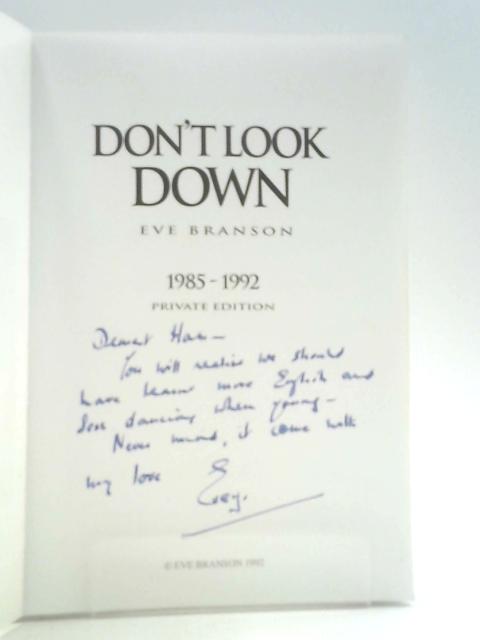 DON'T LOOK
DOWN
EVE BRANSON
1985 - 1992
PRIVATE EDITION
Dearest
You will realise we should
have learnt more English and
less dancing when young -
Never mind, it come with
my love
© EVE BRANSON 1992